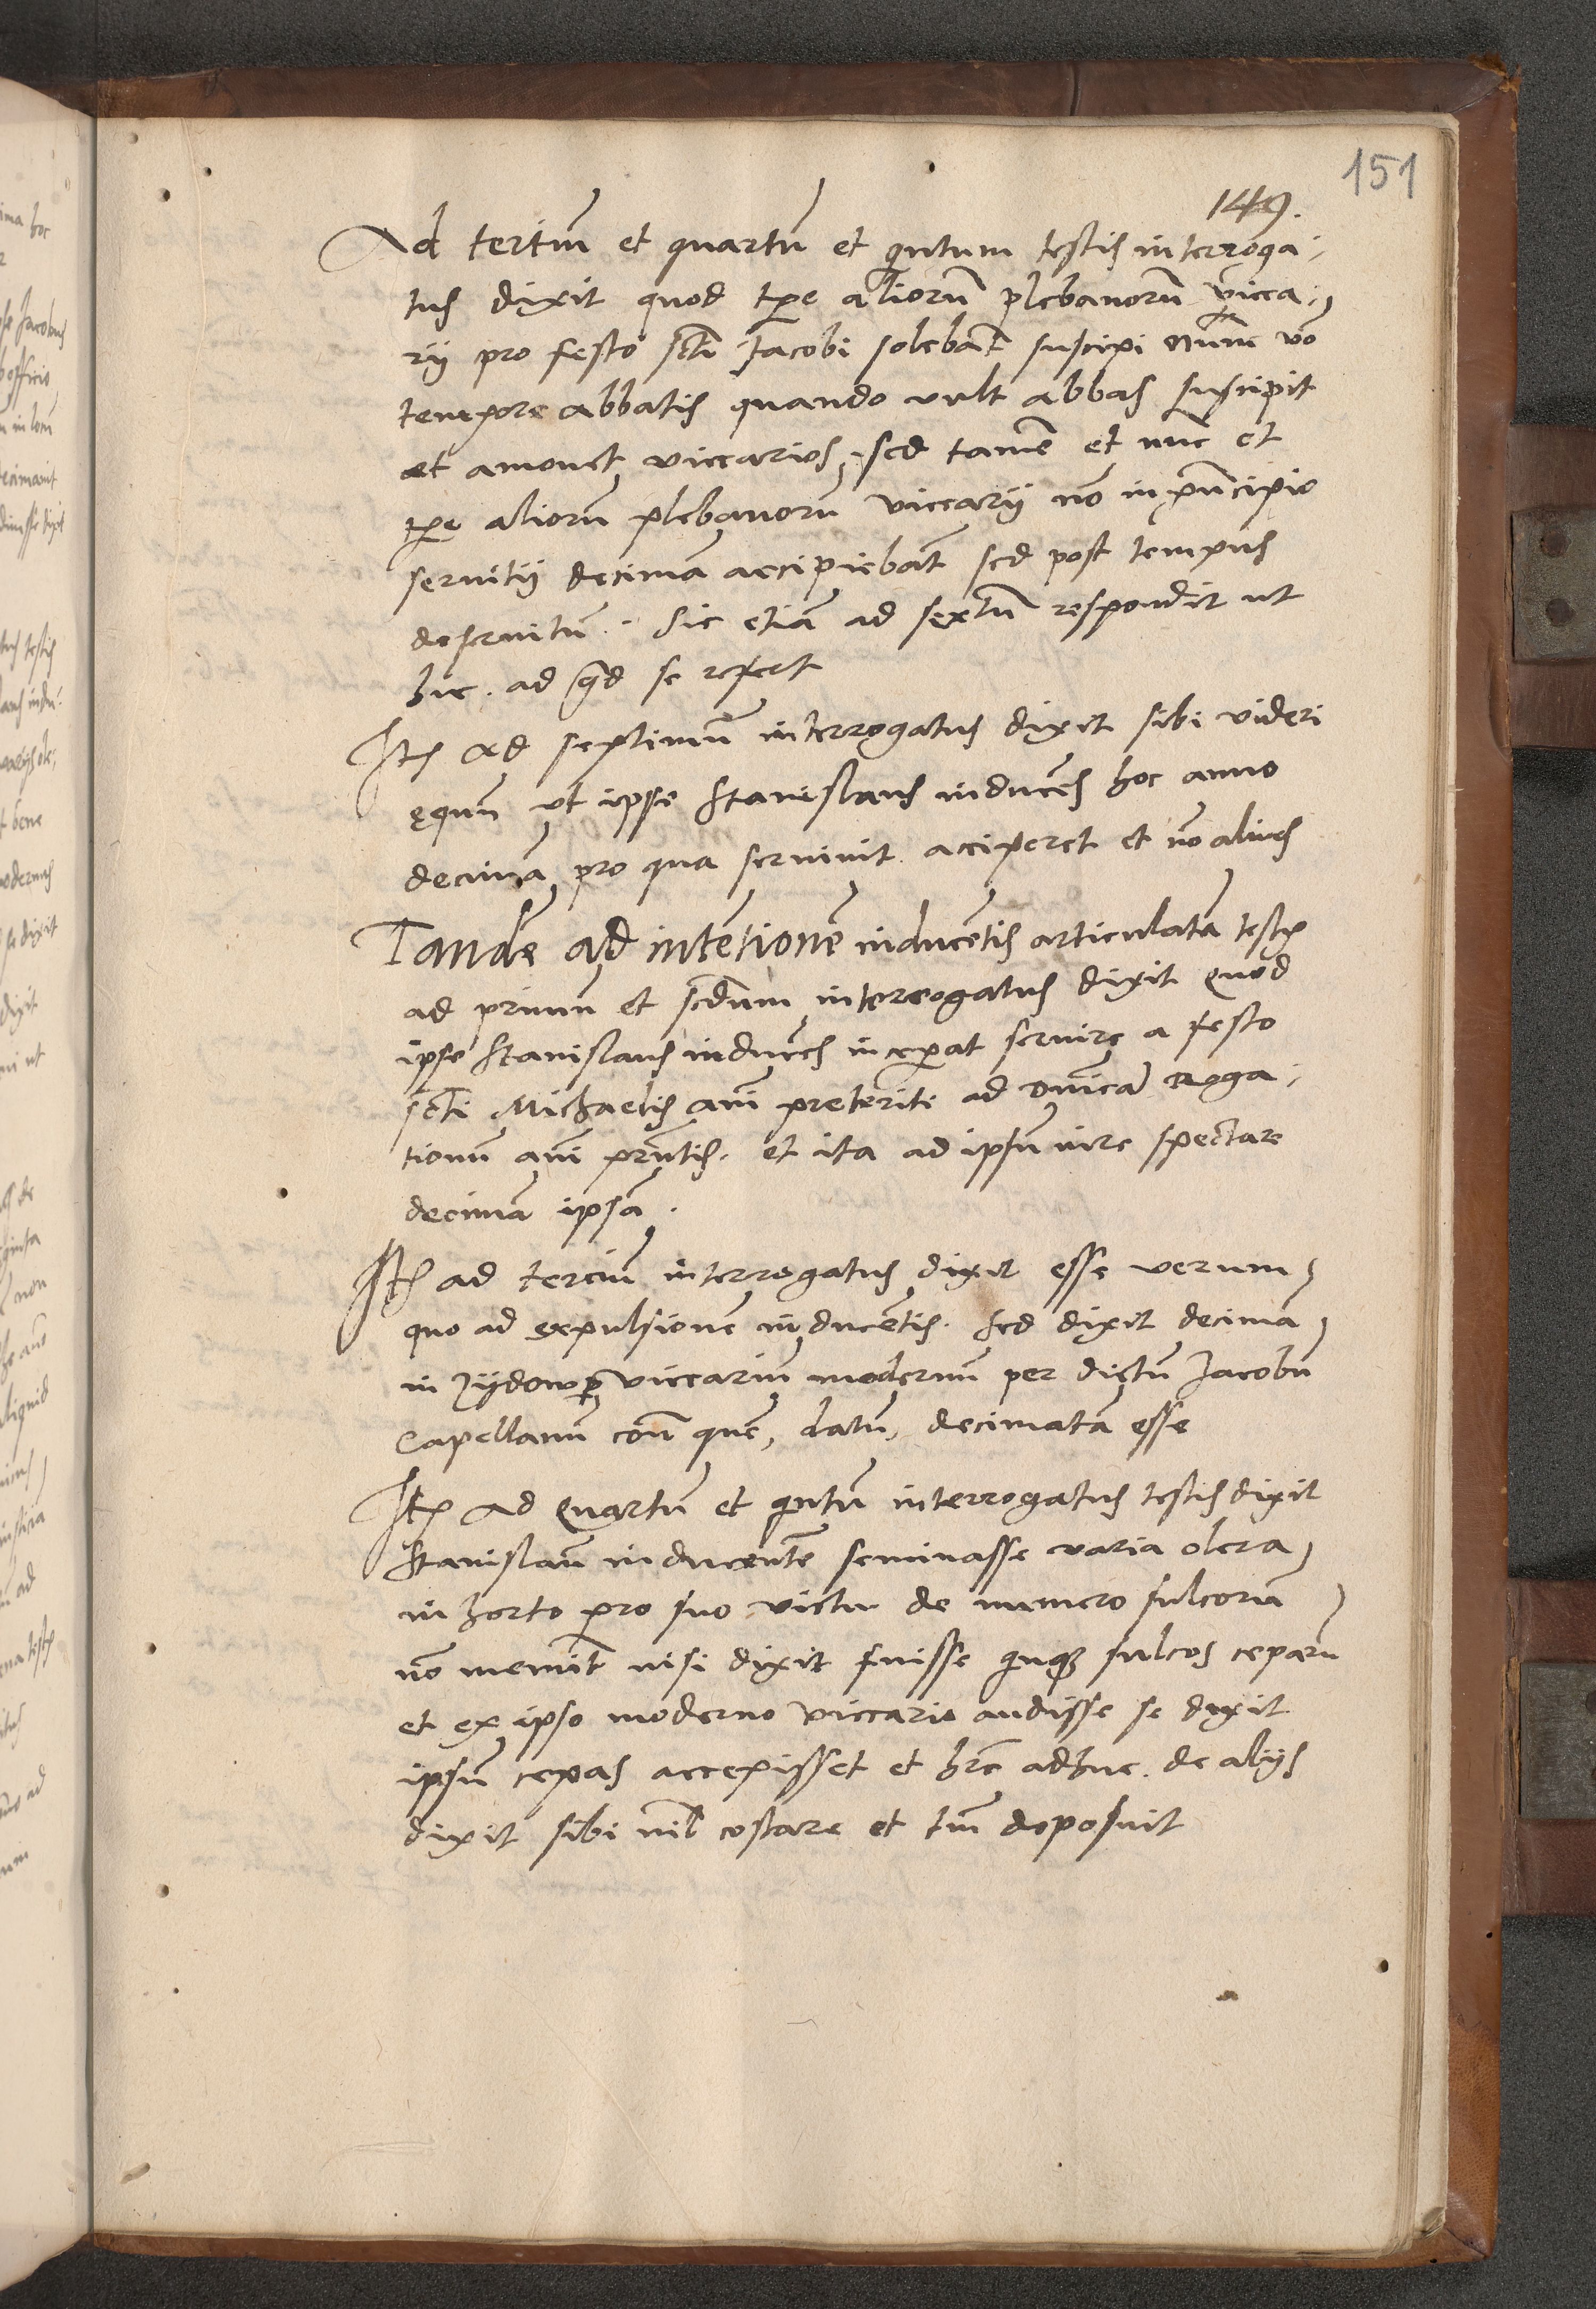 151
149.
Ad tertiū et quartū et qntum testis interroga:
tus dixit quod tp̄e aliorū plebanorū vicca:
rij pro festo scti Jacobi solebāt suscipi nūnc vo
tempore abbatis quando vult abbas suscipit
et amouet viccarios, sed tamē et nūc et
tp̄e aliorū plebanorū viccarij nō in pncipio
seruitij decimā accipiebāt sed post tempus
deseruitū. Sic etiā ad sextū respondit ut
huc. ad qd se refert
Itē ad septimū interrogatus dixit sibi videri
ęquū ut ipse Stanislaus inducēs hoc anno
decimā pro qua seruiuit acciperet et nō alius
Tandē ad intētionē inducētis articulatā testis
ad primū et scdum interrogatus dixit quod
ipse Stanislaus inducēs inceperat seruire a festo
scti Michaelis anni preteriti ad dnicā roga:
tionū anni prntis. et ita ad ipsū iure spectare
decimā ipsā.
Itē ad terciū interrogatus dixit esse verum
quo ad expulsionē inducētis. sed dixit decimā
in Zydow p viccariū modernū per dictū Jacobū
Capellanū cont quē, datū, decimatā esse
Itē ad quartū et qntū interrogatus testis dixit
Stanislaū inducentē seminasse varia olera
in horto pro suo victu de numero sulcorū
nō memīt nisi dixit fuisse qnq sulcos ceparū
et ex ipso moderno viccario audisse se dixit
ipsū cepas accepisset et hre adhuc. de alijs
dixit sibi nil costare et tm̄ deposuit